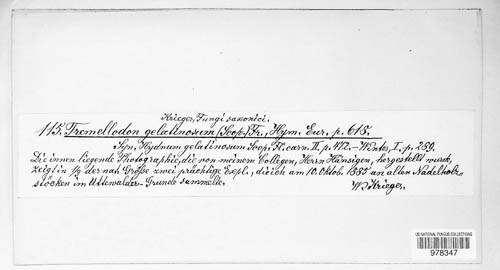 Krieger, Fungi saxonici.
115. Tremellodon gelatinosum (Scop.) Fr., Hym. Eur. p. 618.
Syn. Hydnum gelatinosum Scop. Fl. carn. II. p. 472. – Winter, I, p. 259.
Die innen liegende Photographie, die von meinem Collegen, Herrn Hänsigen, hergestellt wurde,
zeigt in ½ der nat. Größe zwei prächtige Expl., die ich am 10. Oktob. 1885 an alten Nadelholz-
stöcken im Uttewalder-Grunde sammelte. W. Krieger.
US NATIONAL FUNGUS COLLECTIONS
978347